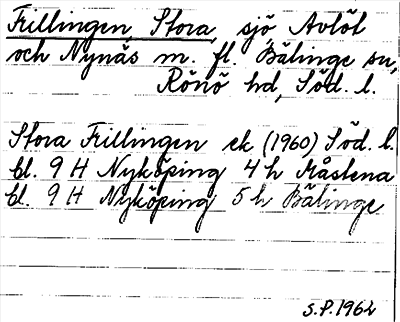 Frillingen, Stora, sjö Avlöt
och Nynäs m. fl. Bälinge sn,
Rönö hd, Söd. l.
Stora Frillingen ek (1960) Söd. l.
bl. 9 H Nyköping 4 h Råstena
bl. 9 H Nyköping 5 h Bälinge
S.P. 1962